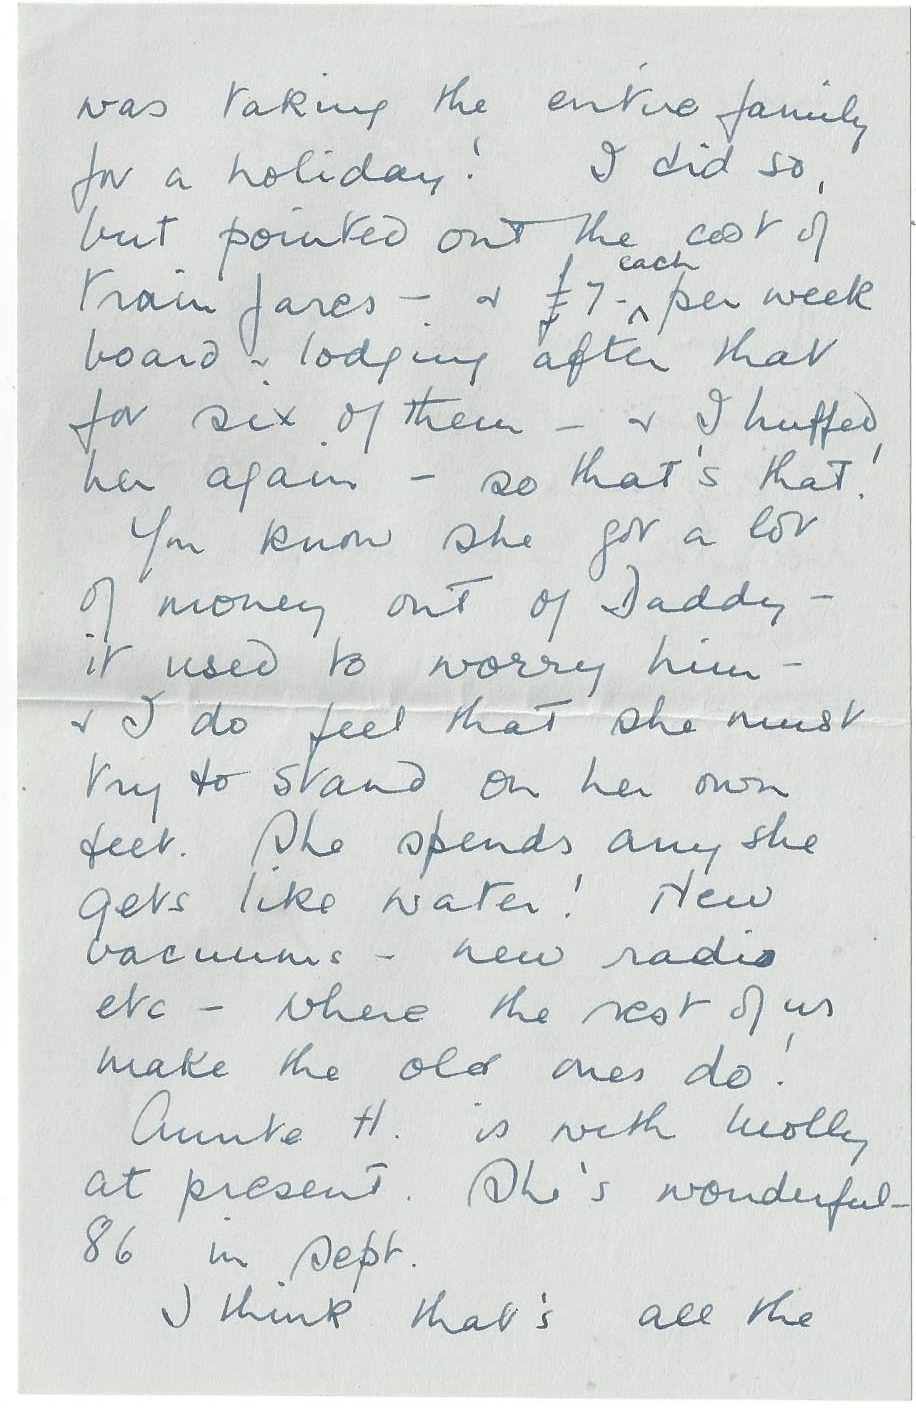 was taking the entire family
for a holiday! I did so,
but pointed out the cost of
train fares - & £7- each per week
board & lodging after that
for six of them - & I huffed
her again - so that's that!
You know she got a lot
of money out of Daddy -
it used to worry him -
& I do feel that she must
try to stand on her own
feet. She spends any she
gets like water! New
vacuums - new radio
etc - where the rest of us
make the old ones do!
Aunte H. is with Molly
at present. She's wonderful -
86 in Sept.
I think that's all the